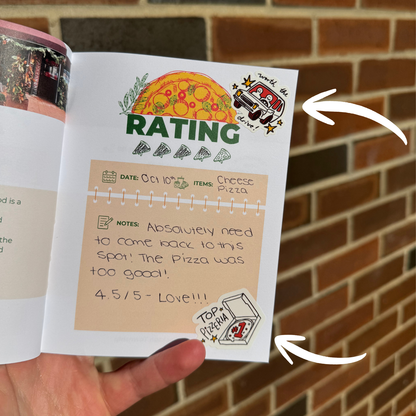 worth the
drive!
RATING
DATE: Oct 10th ITEMS: Cheese
Pizza
NOTES: Absolutely need
to come back to this
spot! The Pizza was
too good!
4.5/5 - Love!!!
TOP
PIZZERIA
#1
d is a
d
the